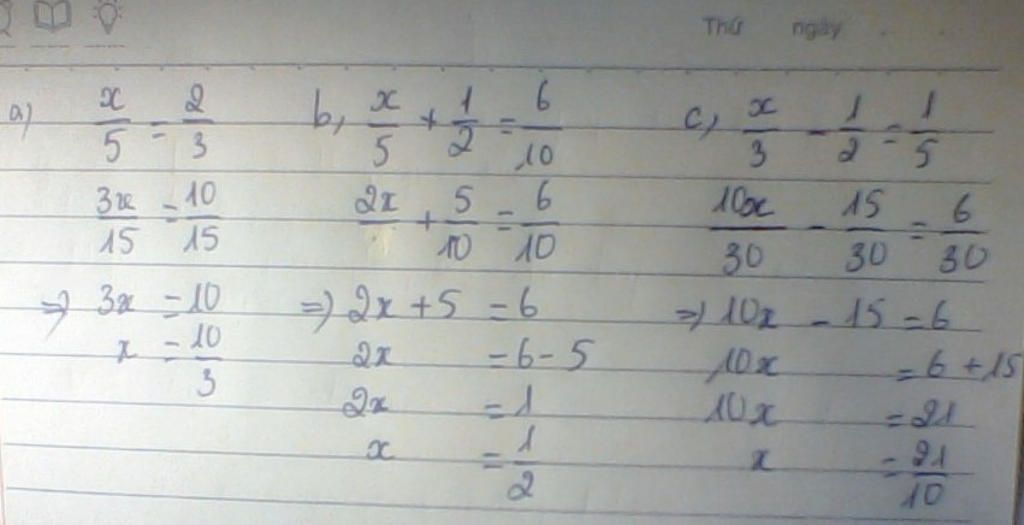 Thứ ngày
a) x/5 = 2/3
3x/15 = 10/15
=> 3x = 10
x = 10/3
b, x/5 + 1/2 = 6/10
2x/ + 5/10 = 6/10
=> 2x + 5 = 6
2x = 6 - 5
2x = 1
x = 1/2
c, x/3 - 1/2 = 1/5
10x/30 - 15/30 = 6/30
=> 10x - 15 = 6
10x = 6 + 15
10x = 21
x = 21/10